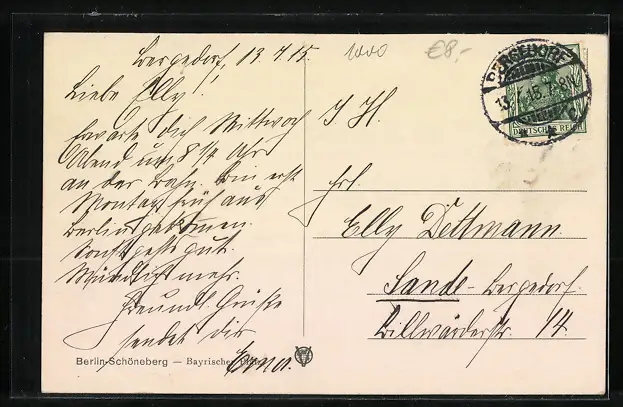 Bergedorf, 13.7.15.
Liebe Elly!
Erwarte dich Mittwoch
Abend um 8 1/4 Uhr
an der Bahn. Bin erst
Montag früh aus
Berlin gekommen.
Sonst gehts gut.
Mündlich mehr.
Freundl. Grüße
sendet dir
Erna.
Berlin-Schöneberg — Bayrischer
1000
€8,-
BERGEDORF
13.7.15. 7-8N
DEUTSCHES REICH
I H.
Frl.
Elly Dettmann.
Sande-Bergedorf.
Billwärderstr. 14.